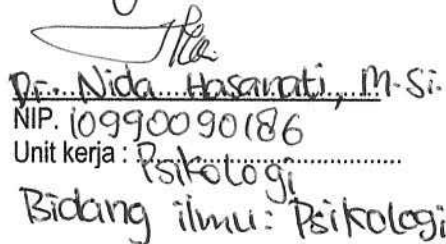 Dr. Nida Hasanati, M.Si.
NIP. 10990090186
Unit kerja : Psikologi
Bidang ilmu : Psikologi